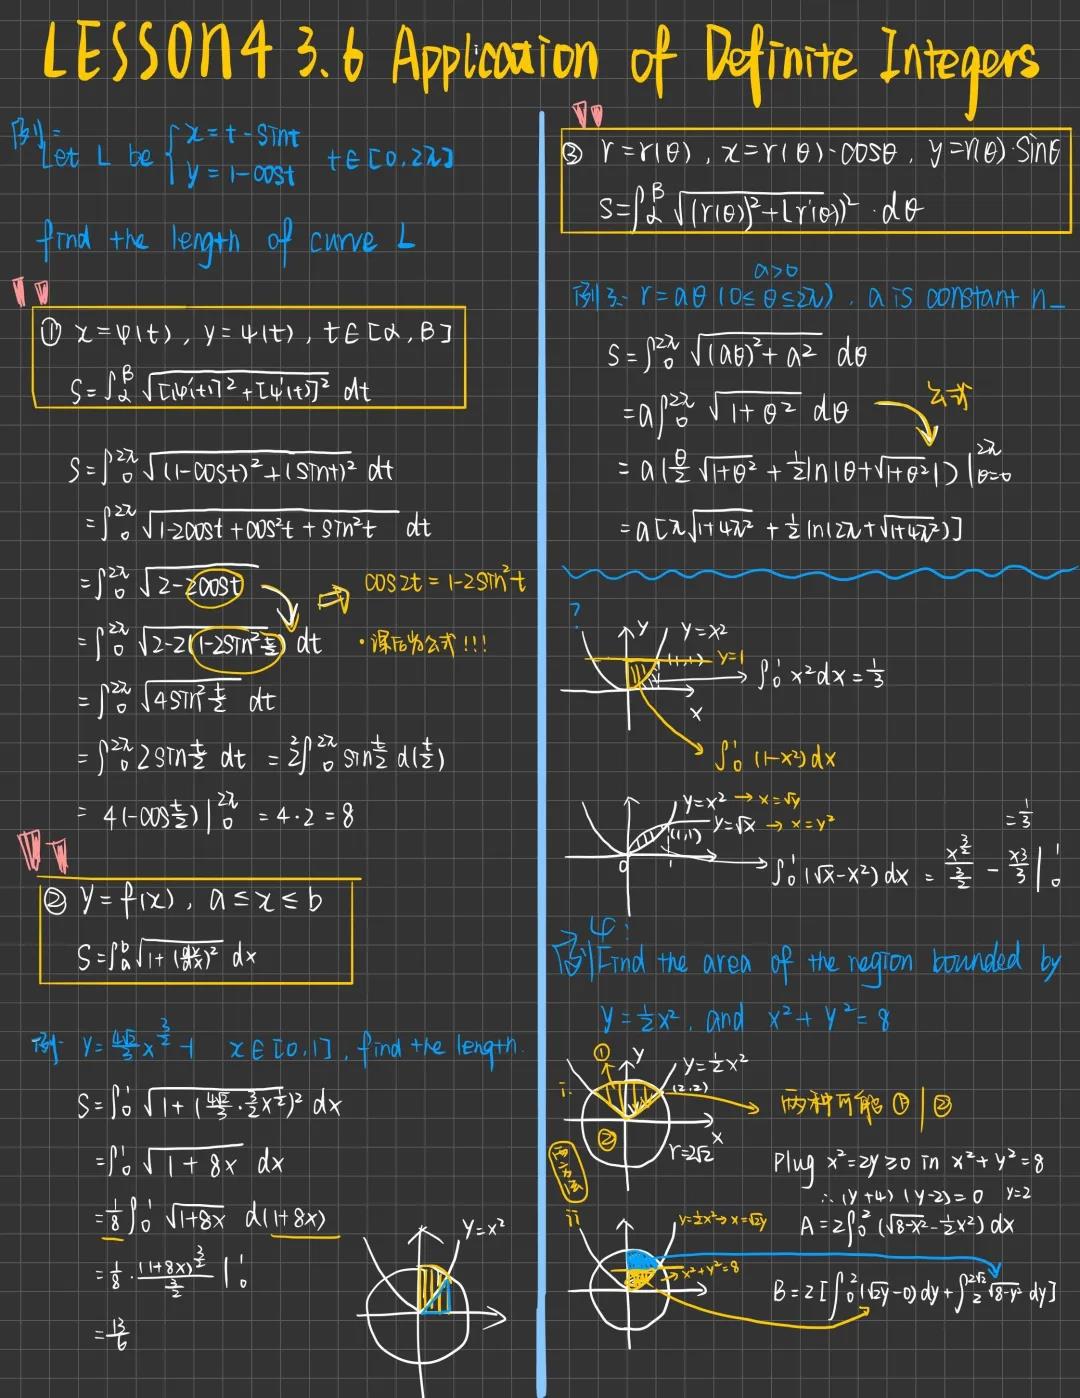 LESSON4 3.6 Application of Definite Integers
例1:
Let L be { x = t - sint
y = 1 - cost
t∈[0,2π]
find the length of curve L
① x=φ(t), y=ψ(t), t∈[α,β]
S=∫_α^β √([φ'(t)]²+[ψ'(t)]²) dt
S=∫_0^{2π} √((1-cost)²+(sint)²) dt
=∫_0^{2π} √(1-2cost+cos²t+sin²t) dt
=∫_0^{2π} √(2-2cost) ⇒ cos2t=1-2sin²t
=∫_0^{2π} √(2-2(1-2sin²t/2)) dt
=∫_0^{2π} √(4sin²t/2) dt
=∫_0^{2π} 2sin t/2 dt = 2∫_0^{2π} sin t/2 d(t/2)
= 4(-cos t/2)|_0^{2π} = 4·2=8
② y=f(x), a≤x≤b
S=∫_a^b √(1+(dy/dx)²) dx
例 y= 4√2/3 x^{3/2} -1 x∈[0,1], find the length.
S=∫_0^1 √(1+(4√2/3·3/2x^{1/2})²) dx
=∫_0^1 √(1+8x) dx
=1/8∫_0^1 √(1+8x) d(1+8x)
=1/8·(1+8x)^{3/2}/(3/2)|_0^1
=13/6
y=x²
③ r=r(θ), x=r(θ)·cosθ, y=r(θ)·sinθ
S=∫_α^β √((r(θ))²+(r'(θ))²)·dθ
a>0
例3: r=aθ (0≤θ≤2π), a is constant n_
S=∫_0^{2π} √((aθ)²+a²) dθ
=a∫_0^{2π} √(1+θ²) dθ 公式
=a(θ/2 √(1+θ²)+1/2ln|θ+√(1+θ²)|)|_{θ=0}^{2π}
=a[π√(1+4π²)+1/2ln(2π+√(1+4π²))]
?
y y=x²
(1,1) y=1
∫_0^1 x²dx=1/3
x
∫_0^1 (1-x²)dx
y=x² → x=√y
y=√x → x=y²
(1,1)
0 1
∫_0^1 (√x-x²)dx = x^{3/2}/(3/2) - x³/3|_0^1
=1/3
例4:
Find the area of the region bounded by
y=1/2x², and x²+y²=8
① y y=1/2x²
i. (2,2) 两种可能 ①|②
② x
r=2√2
两方法
Plug x²=2y≥0 in x²+y²=8
∴(y+4)(y-2)=0 y=2
A=2∫_0^2 (√(8-x²)-1/2x²)dx
ii y=1/2x²→x=√2y
x²+y²=8
B=2[∫_0^2(√2y-0)dy+∫_2^{2√2}√(8-y²)dy]